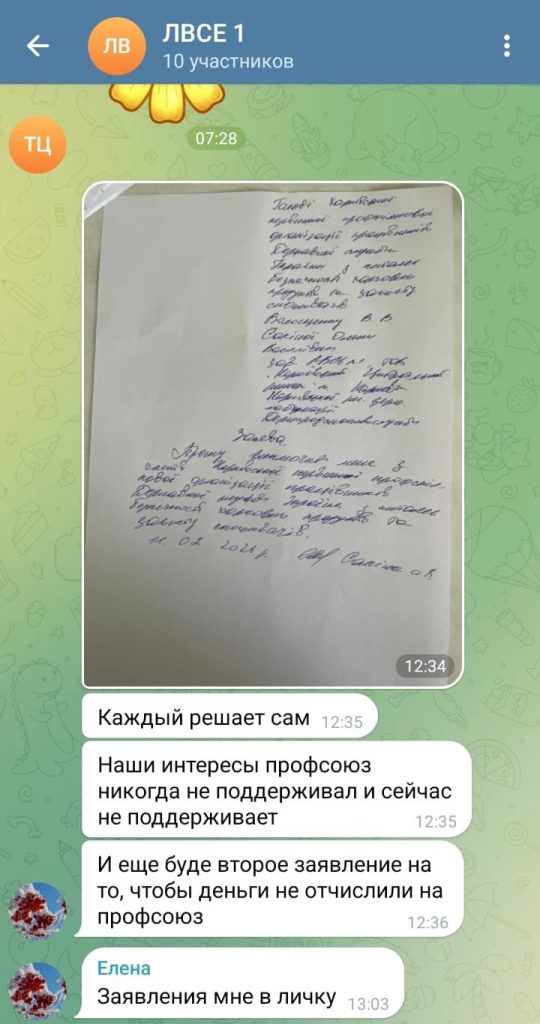 ЛВСЕ 1
ЛВ
10 участников
07:28
ТЦ
Голові Харківської
первинної профспілкової
організації працівників
Державної служби
України з питань
безпечності харчових
продуктів та захисту
споживачів
Волощенку В. В.
Олени
Василівни
ринок
лабораторії
Держпродспоживслужби
Заява
Прошу виключити мене з
членів Харківської первинної профспіл-
кової організації працівників
Державної служби України з питань
безпечності харчових продуктів та
захисту споживачів.
11 02
12:34
Каждый решает сам 12:35
Наши интересы профсоюз
никогда не поддерживал и сейчас
не поддерживает 12:35
И еще буде второе заявление на
то, чтобы деньги не отчислили на
профсоюз 12:36
Елена
Заявления мне в личку 13:03